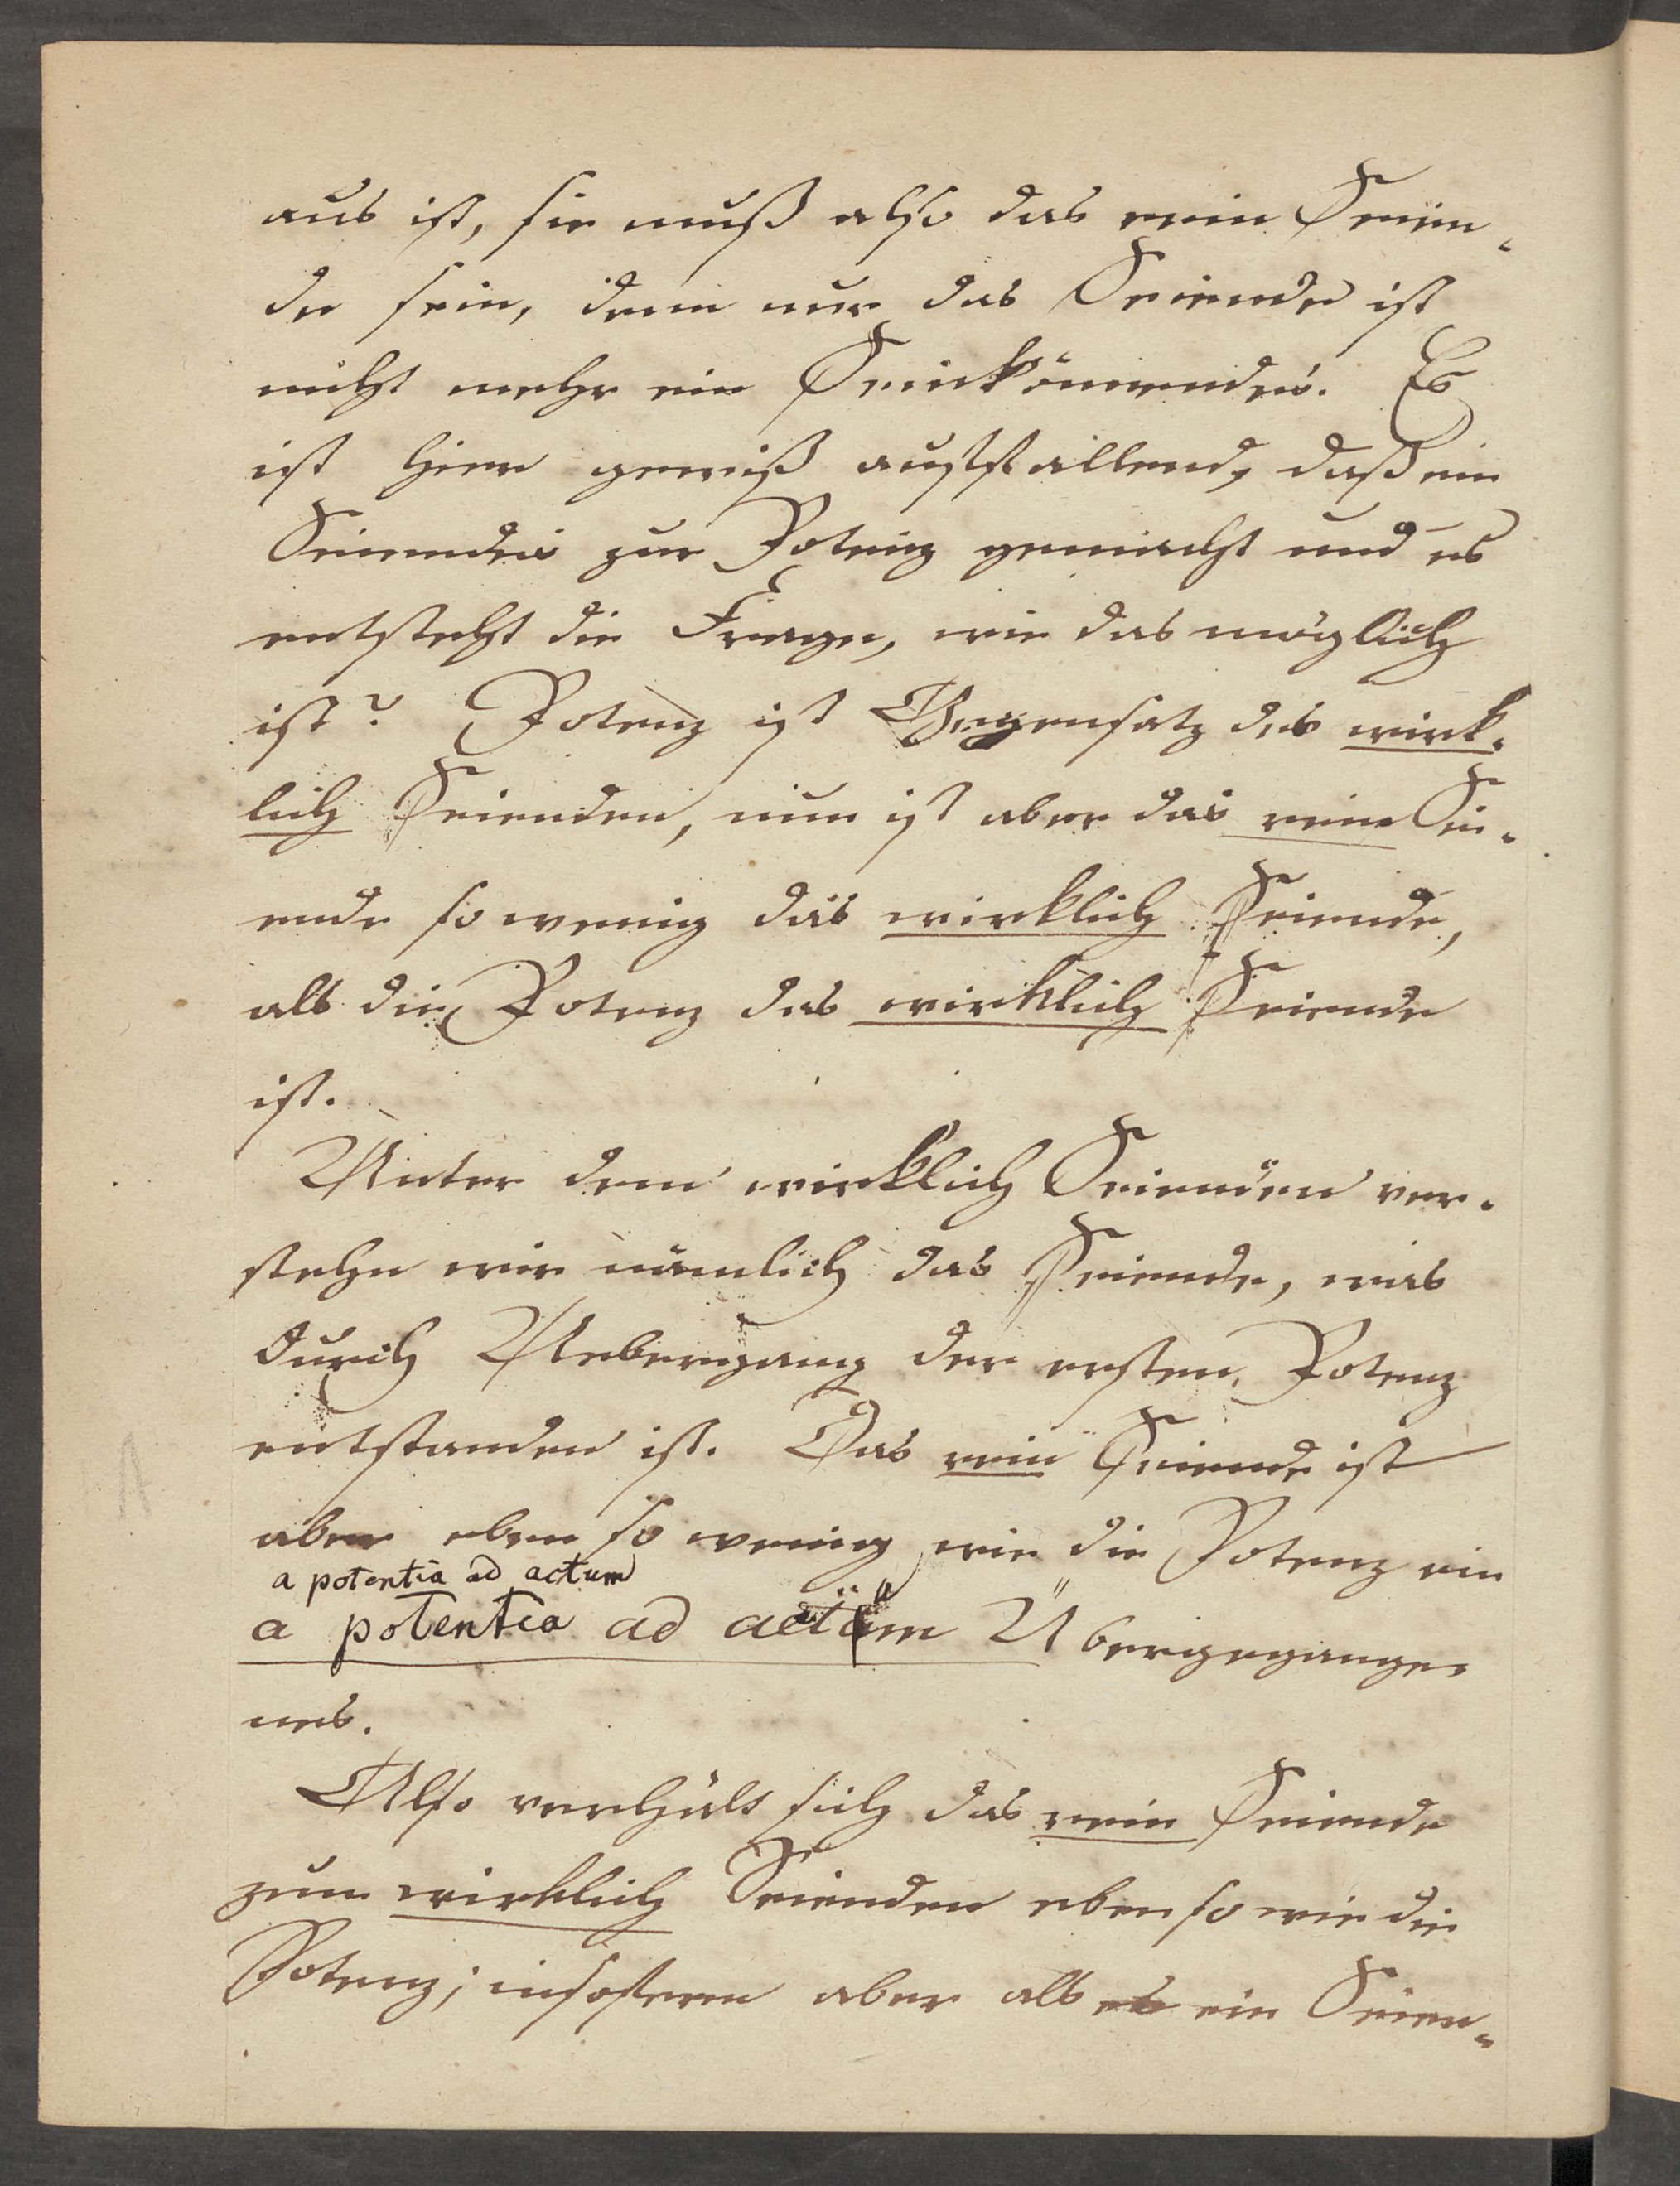 aus ist, sie muß also das rein Seien-
de sein, denn nur das Seiende ist
nicht mehr ein Seinkönnendes. Es
ist hier gewiß auffallend, daß ein
Seiendes zur Potenz gemacht und es
entsteht die Frage, wie das möglich
ist? Potenz ist Gegensatz des wirk-
lich Seienden, nun ist aber das reine Sei-
ende so wenig das wirklich Seiende,
als die Potenz das wirklich Seiende
ist.
Unter dem wirklich Seienden ver-
stehn wir nämlich das Seiende, was
durch Uebergang der ersten Potenz
entstanden ist. Das rein Seiende ist
aber eben so wenig wie die Potenz ein
a potentia ad actum
a potentia ad actum Übergegange-
nes.
Also verhält sich das rein Seiende
zum wirklich Seienden eben so wie die
Potenz; insofern aber als es ein Seien-